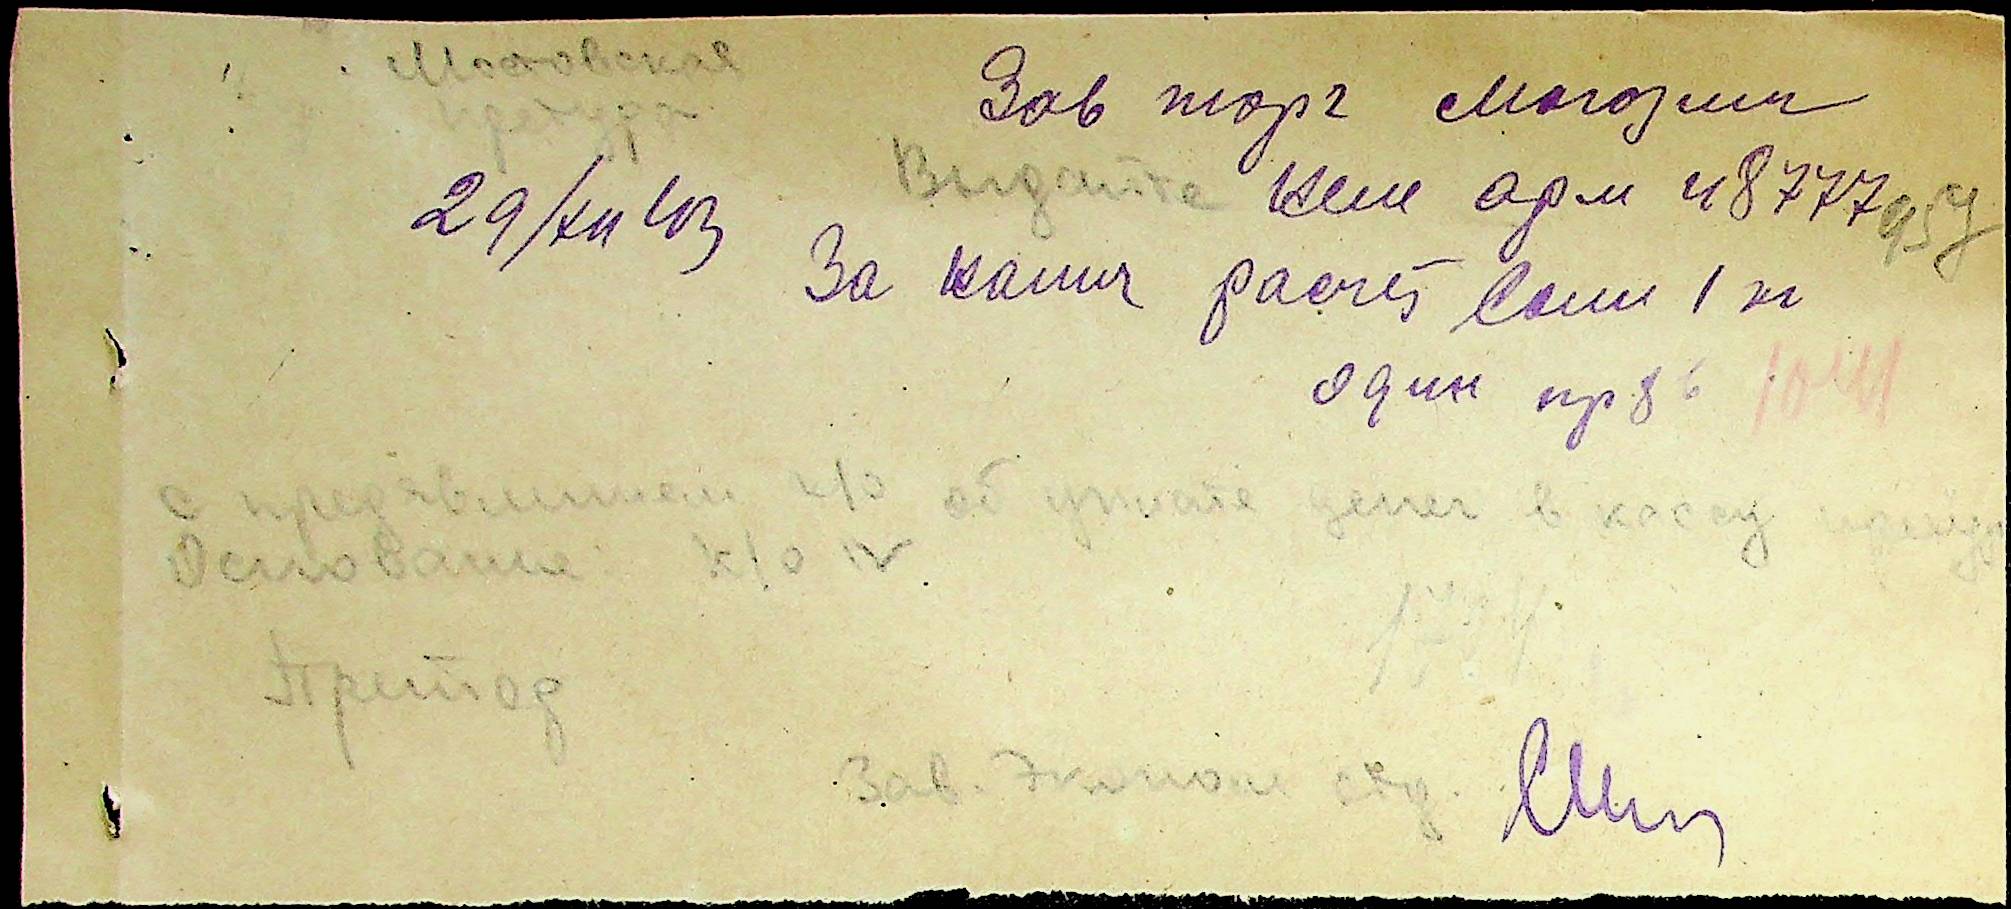 Мостовская
претура
Зав торг магазин
29/XII 43
Выдайте Кем арм ч 8777 953
За налич расчет Соли 1 кг
один пр 8
1041
с предявлением к/о об уплате денег в кассу
Основание: к/о №
Претор
Зав. Эконом отд.